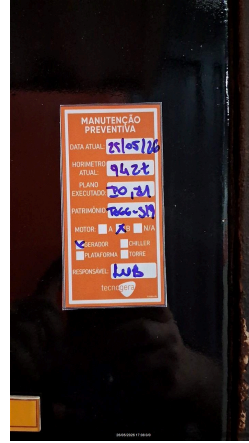 MANUTENÇÃO
PREVENTIVA
DATA ATUAL: 25/05/26
HORIMETRO
ATUAL: 9427
PLANO
EXECUTADO:
PATRIMÔNIO:
MOTOR: A X B N/A
X GERADOR CHILLER
PLATAFORMA TORRE
RESPONSÁVEL:
tecnogera